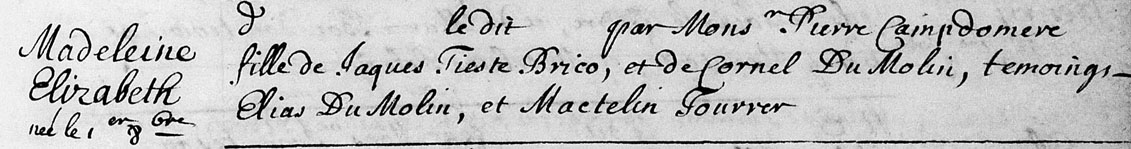 Madeleine
Elizabeth
neé le 1er 8bre
d le dit par Monsr Pierre Campdomere
fille de Jaques Tieste Brico, et de Cornel Du Molin, temoings
Elias Du Molin, et Maetelin Tourrer